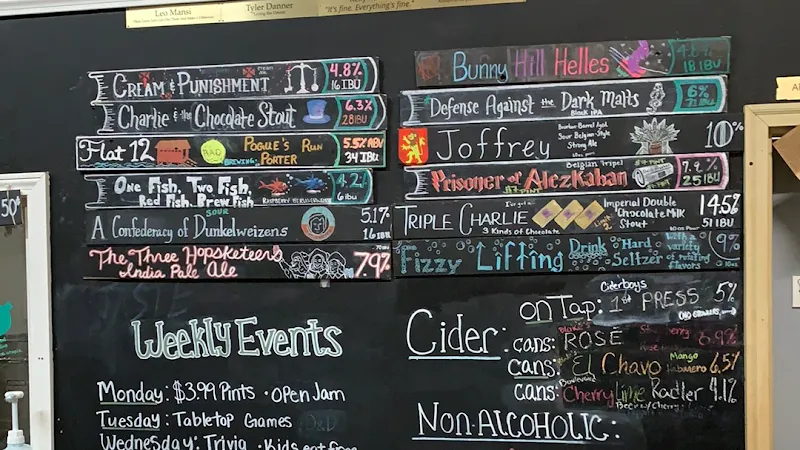 Leo Mansi
Tyler Danner
"It's fine. Everything's fine."
Cream & Punishment
4.8%
16 IBU
Charlie & the Chocolate Stout
6.3%
28 IBU
Flat 12
RAD
BREWING:
Pogue's Run
Porter
5.5% ABV
34 IBU
One Fish, Two Fish,
Red Fish, Brew Fish
4.2%
6 IBU
SOUR
A Confederacy of Dunkelweizens
5.1%
16 IBU
The Three Hopsketeers
India Pale Ale
7.9%
Bunny Hill Helles
18 IBU
Defense Against the Dark Malts
Black IPA
6%
71 IBU
Joffrey
Bourbon Barrel Aged
Sour Belgian Style
Strong Ale
10%
Belgian Tripel
Prisoner of AlezKaban
7.9%
25 IBU
Triple Charlie
3 Kinds of Chocolate
Imperial Double
Chocolate Milk
Stout
14.5%
51 IBU
Fizzy Lifting Drink
Hard
Seltzer
with a
variety
of rotating
flavors
9%
Weekly Events
Monday: $3.99 Pints • Open Jam
Tuesday: Tabletop Games D&D
Wednesday: Trivia • Kids eat free
Ciderboys
on Tap: 1st PRESS 5%
(NO GROWLERS)
Cider:
cans: ROSÉ
6.9%
cans: El Chavo Mango
Habanero 6.5%
Boulevard
cans: Cherry Lime Radler 4.1%
Non-Alcoholic: